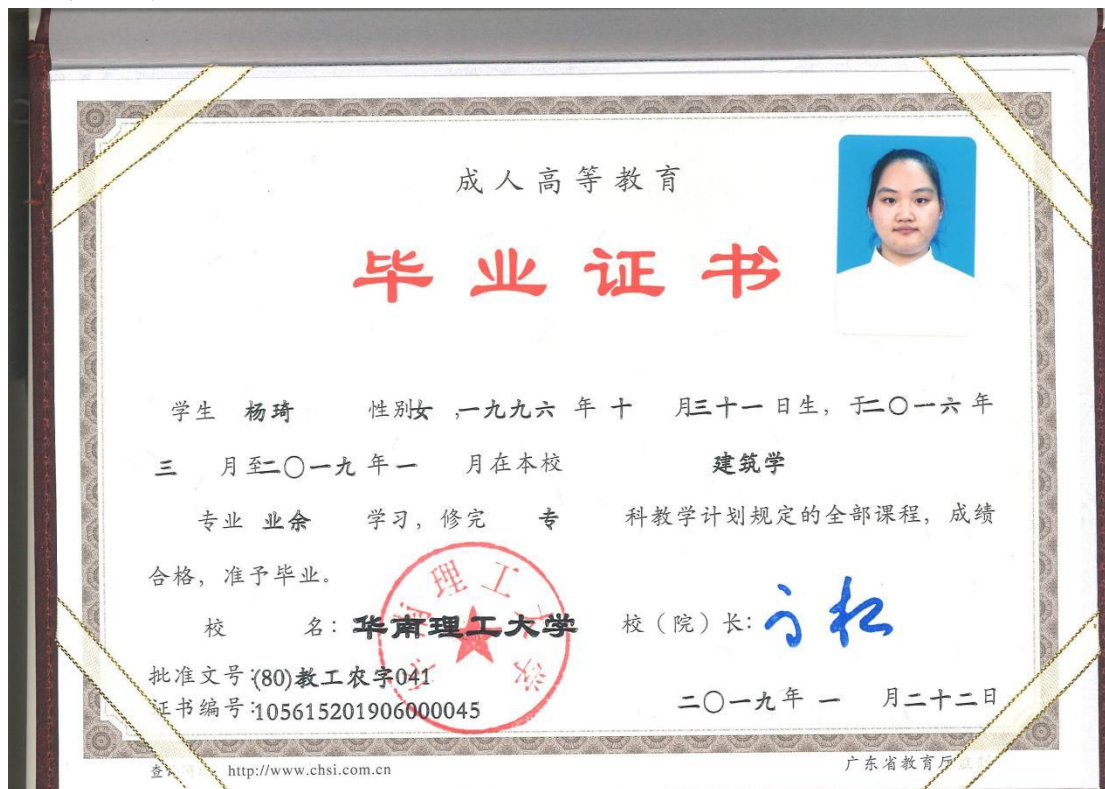 成人高等教育
毕业证书
学生 杨琦 性别女,一九九六 年 十 月三十一日生,于二〇一六年
三 月至二〇一九年一 月在本校 建筑学
专业 业余 学习,修完 专 科教学计划规定的全部课程,成绩
合格,准予毕业。
校 名:华南理工大学 校(院)长:
华南理工大学
批准文号:(80)教工农字041
证书编号:105615201906000045 二〇一九年 一 月二十二日
http://www.chsi.com.cn 广东省教育厅